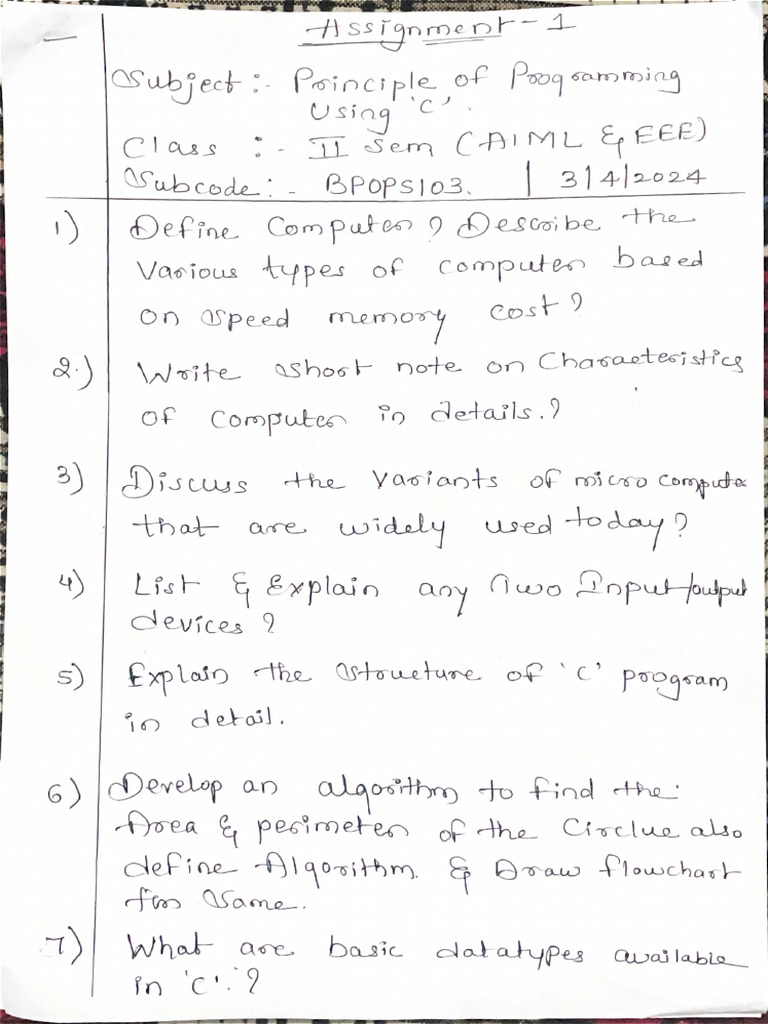 Assignment - 1
Subject :- Principle of Programming
Using 'C'.
Class :- II Sem (AIML & EEE)
Subcode :- BPOPS103. | 3/4/2024
1) Define Computer? Describe the
Various types of computer based
on speed memory cost?
2.) Write short note on Characteristics
of computer in details.?
3) Discuss the variants of micro compute
that are widely used today?
4) List & Explain any Two Input/output
devices?
5) Explain the structure of 'C' program
in detail.
6) Develop an algorithm to find the
Area & perimeter of the Circlue also
define Algorithm. & Draw flowchart
for Same.
7) What are basic datatypes available
in 'C'.?